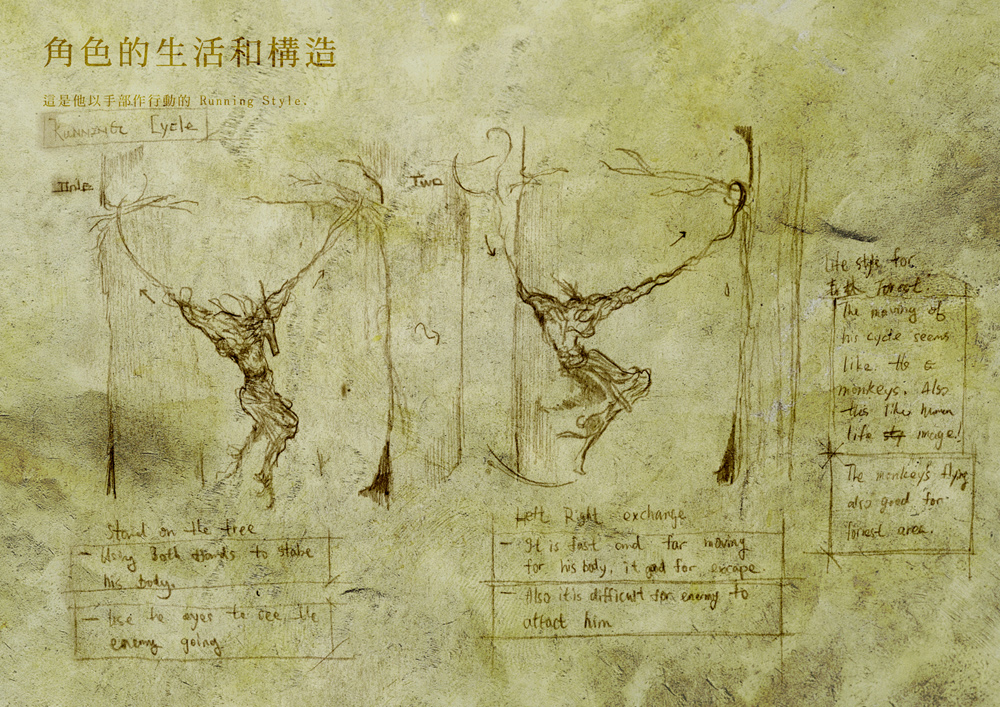 角色的生活和構造
這是他以手部作行動的 Running Style.
Running Cycle
Two
Life style for
Forest.
The moving of
his cycle seems
like
monkeys. Also
this like human
life image!
The monkeys flying
also good for
forest area.
Stand on the tree
- Using Both Hands to stabe
his Body.
- Use he eyes to see the
enemy going
Left Right exchange
- It is fast and far moving
for his body, it good for escape.
- Also it is difficult for enemy to
attact him